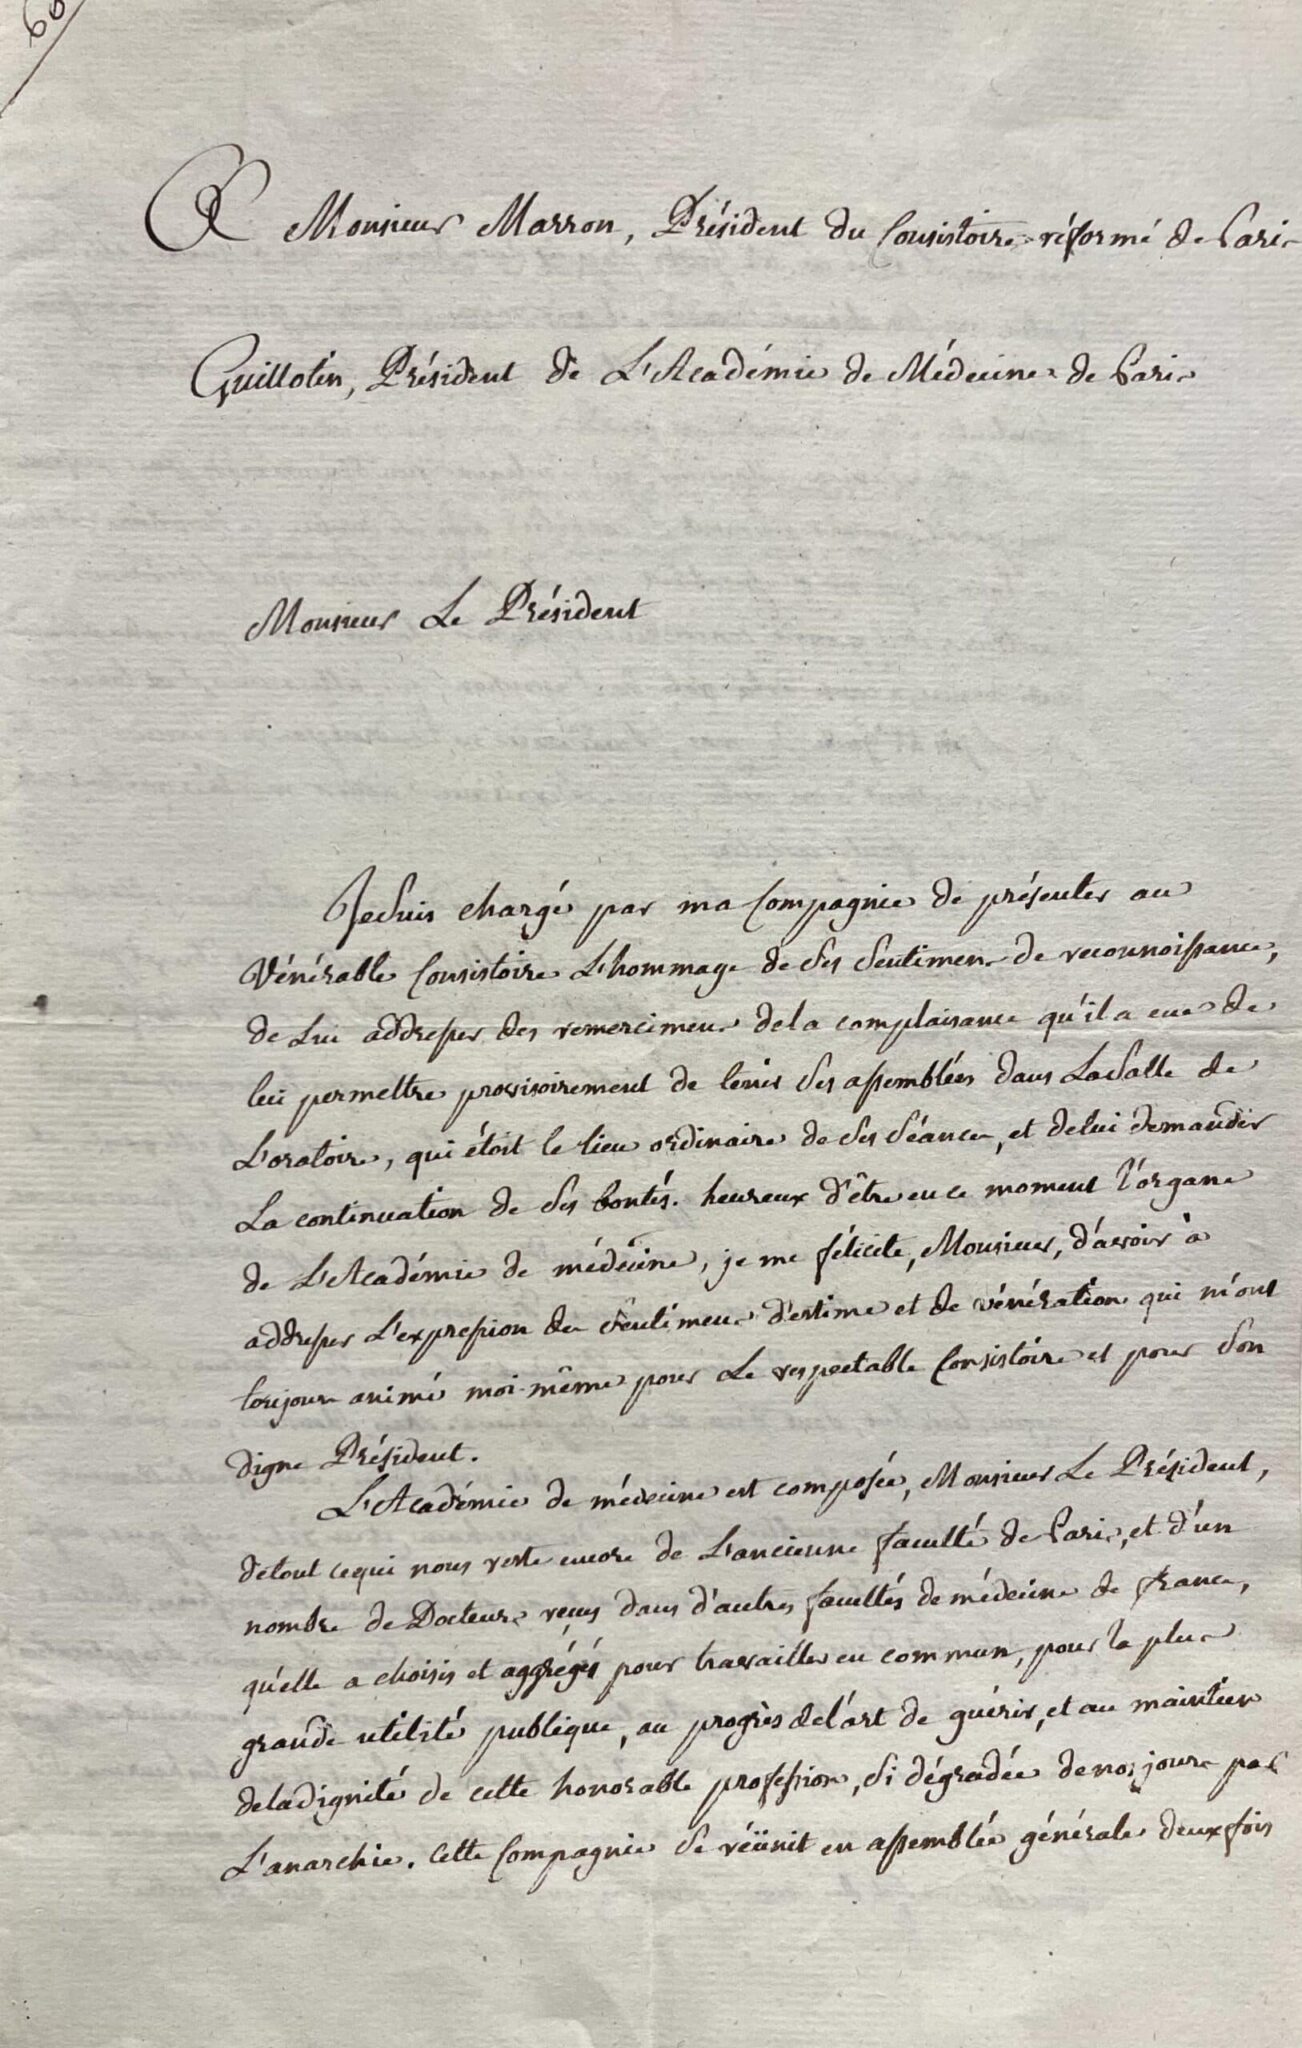 A Monsieur Marron, Président du Consistoire réformé de Paris
Guillotin, Président de L'Académie de Médecine de Paris
Monsieur Le Président
Je suis chargé par ma Compagnie de présenter au
Vénérable Consistoire L'hommage de ses sentimens de reconnoissance,
de Lui addresser des remercimens de la complaisance qu'il a eue de
lui permettre provisoirement de tenir ses assemblées dans La Salle de
L'oratoire, qui étoit le lieu ordinaire de ses séances, et de lui demander
La continuation de ses bontés. heureux d'être en ce moment l'organe
de L'Académie de médecine, je me félicite, Monsieur, d'avoir à
addresser L'expression des sentimens d'estime et de vénération qui m'ont
toujours animé moi-même pour Le respectable Consistoire et pour son
digne Président.
L'Académie de médecine est composée, Monsieur Le Président,
de tout ce qui nous reste encore de L'ancienne faculté de Paris, et d'un
nombre de Docteurs reçus dans d'autres facultés de médecine de france,
qu'elle a choisis et aggrégés pour travailler en commun, pour la plus
grande utilité publique, au progrès de l'art de guérir, et au maintien
de la dignité de cette honorable profession, si dégradée de nos jours par
L'anarchie. Cette Compagnie se réünit en assemblée générale deux fois